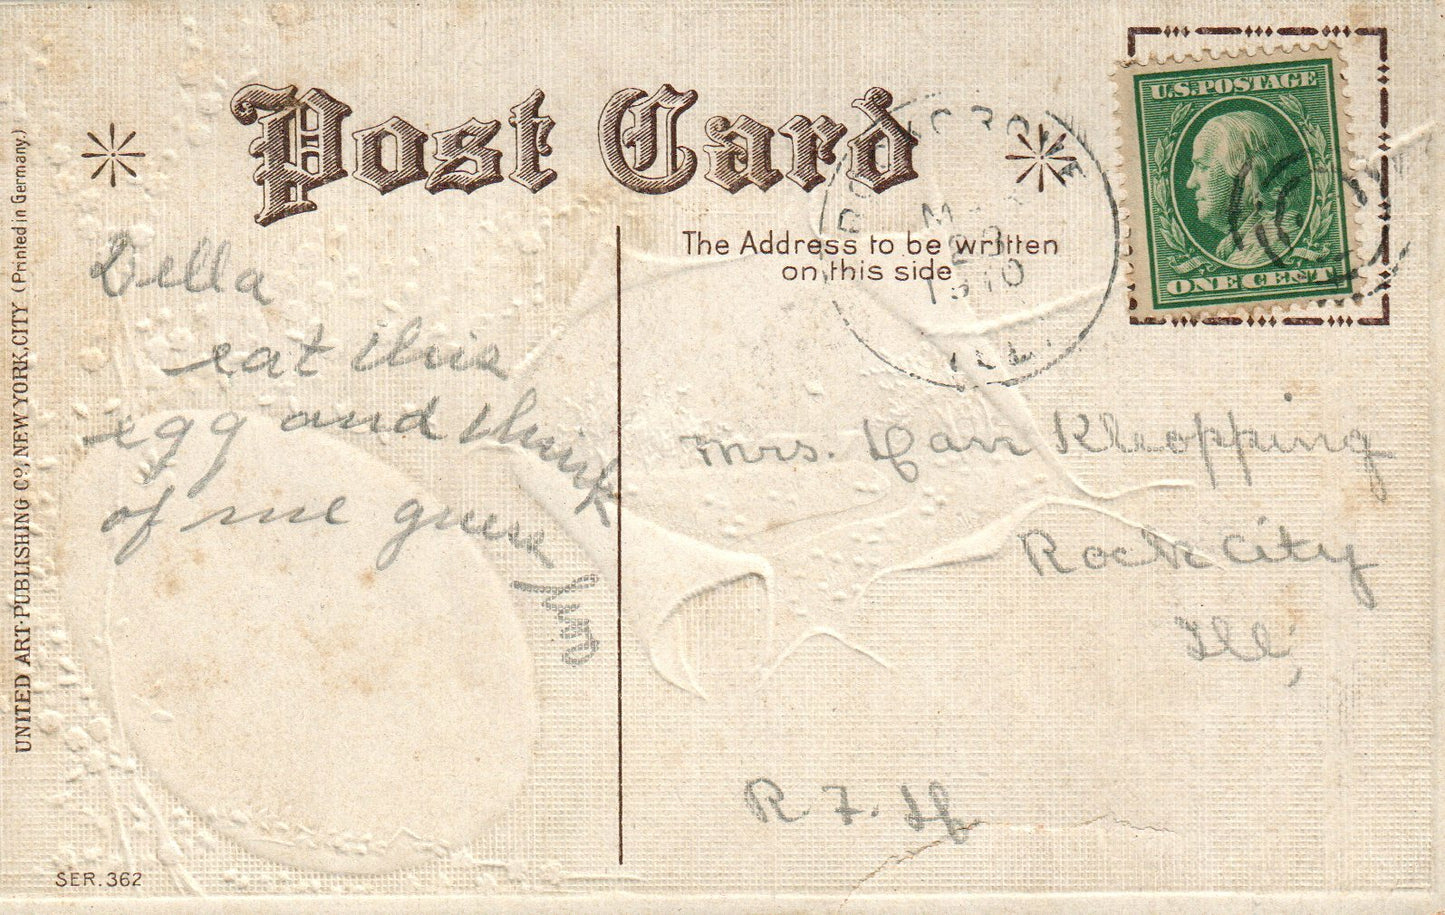 Post Card
U.S. POSTAGE
ONE CENT
The Address to be written
on this side
M
1910
ILL.
Della
eat this
egg and think
of me guess
Mrs. Kloepping
Rock City
Ill,
R. F.
UNITED ART-PUBLISHING CO., NEW YORK, CITY (Printed in Germany.)
SER. 362